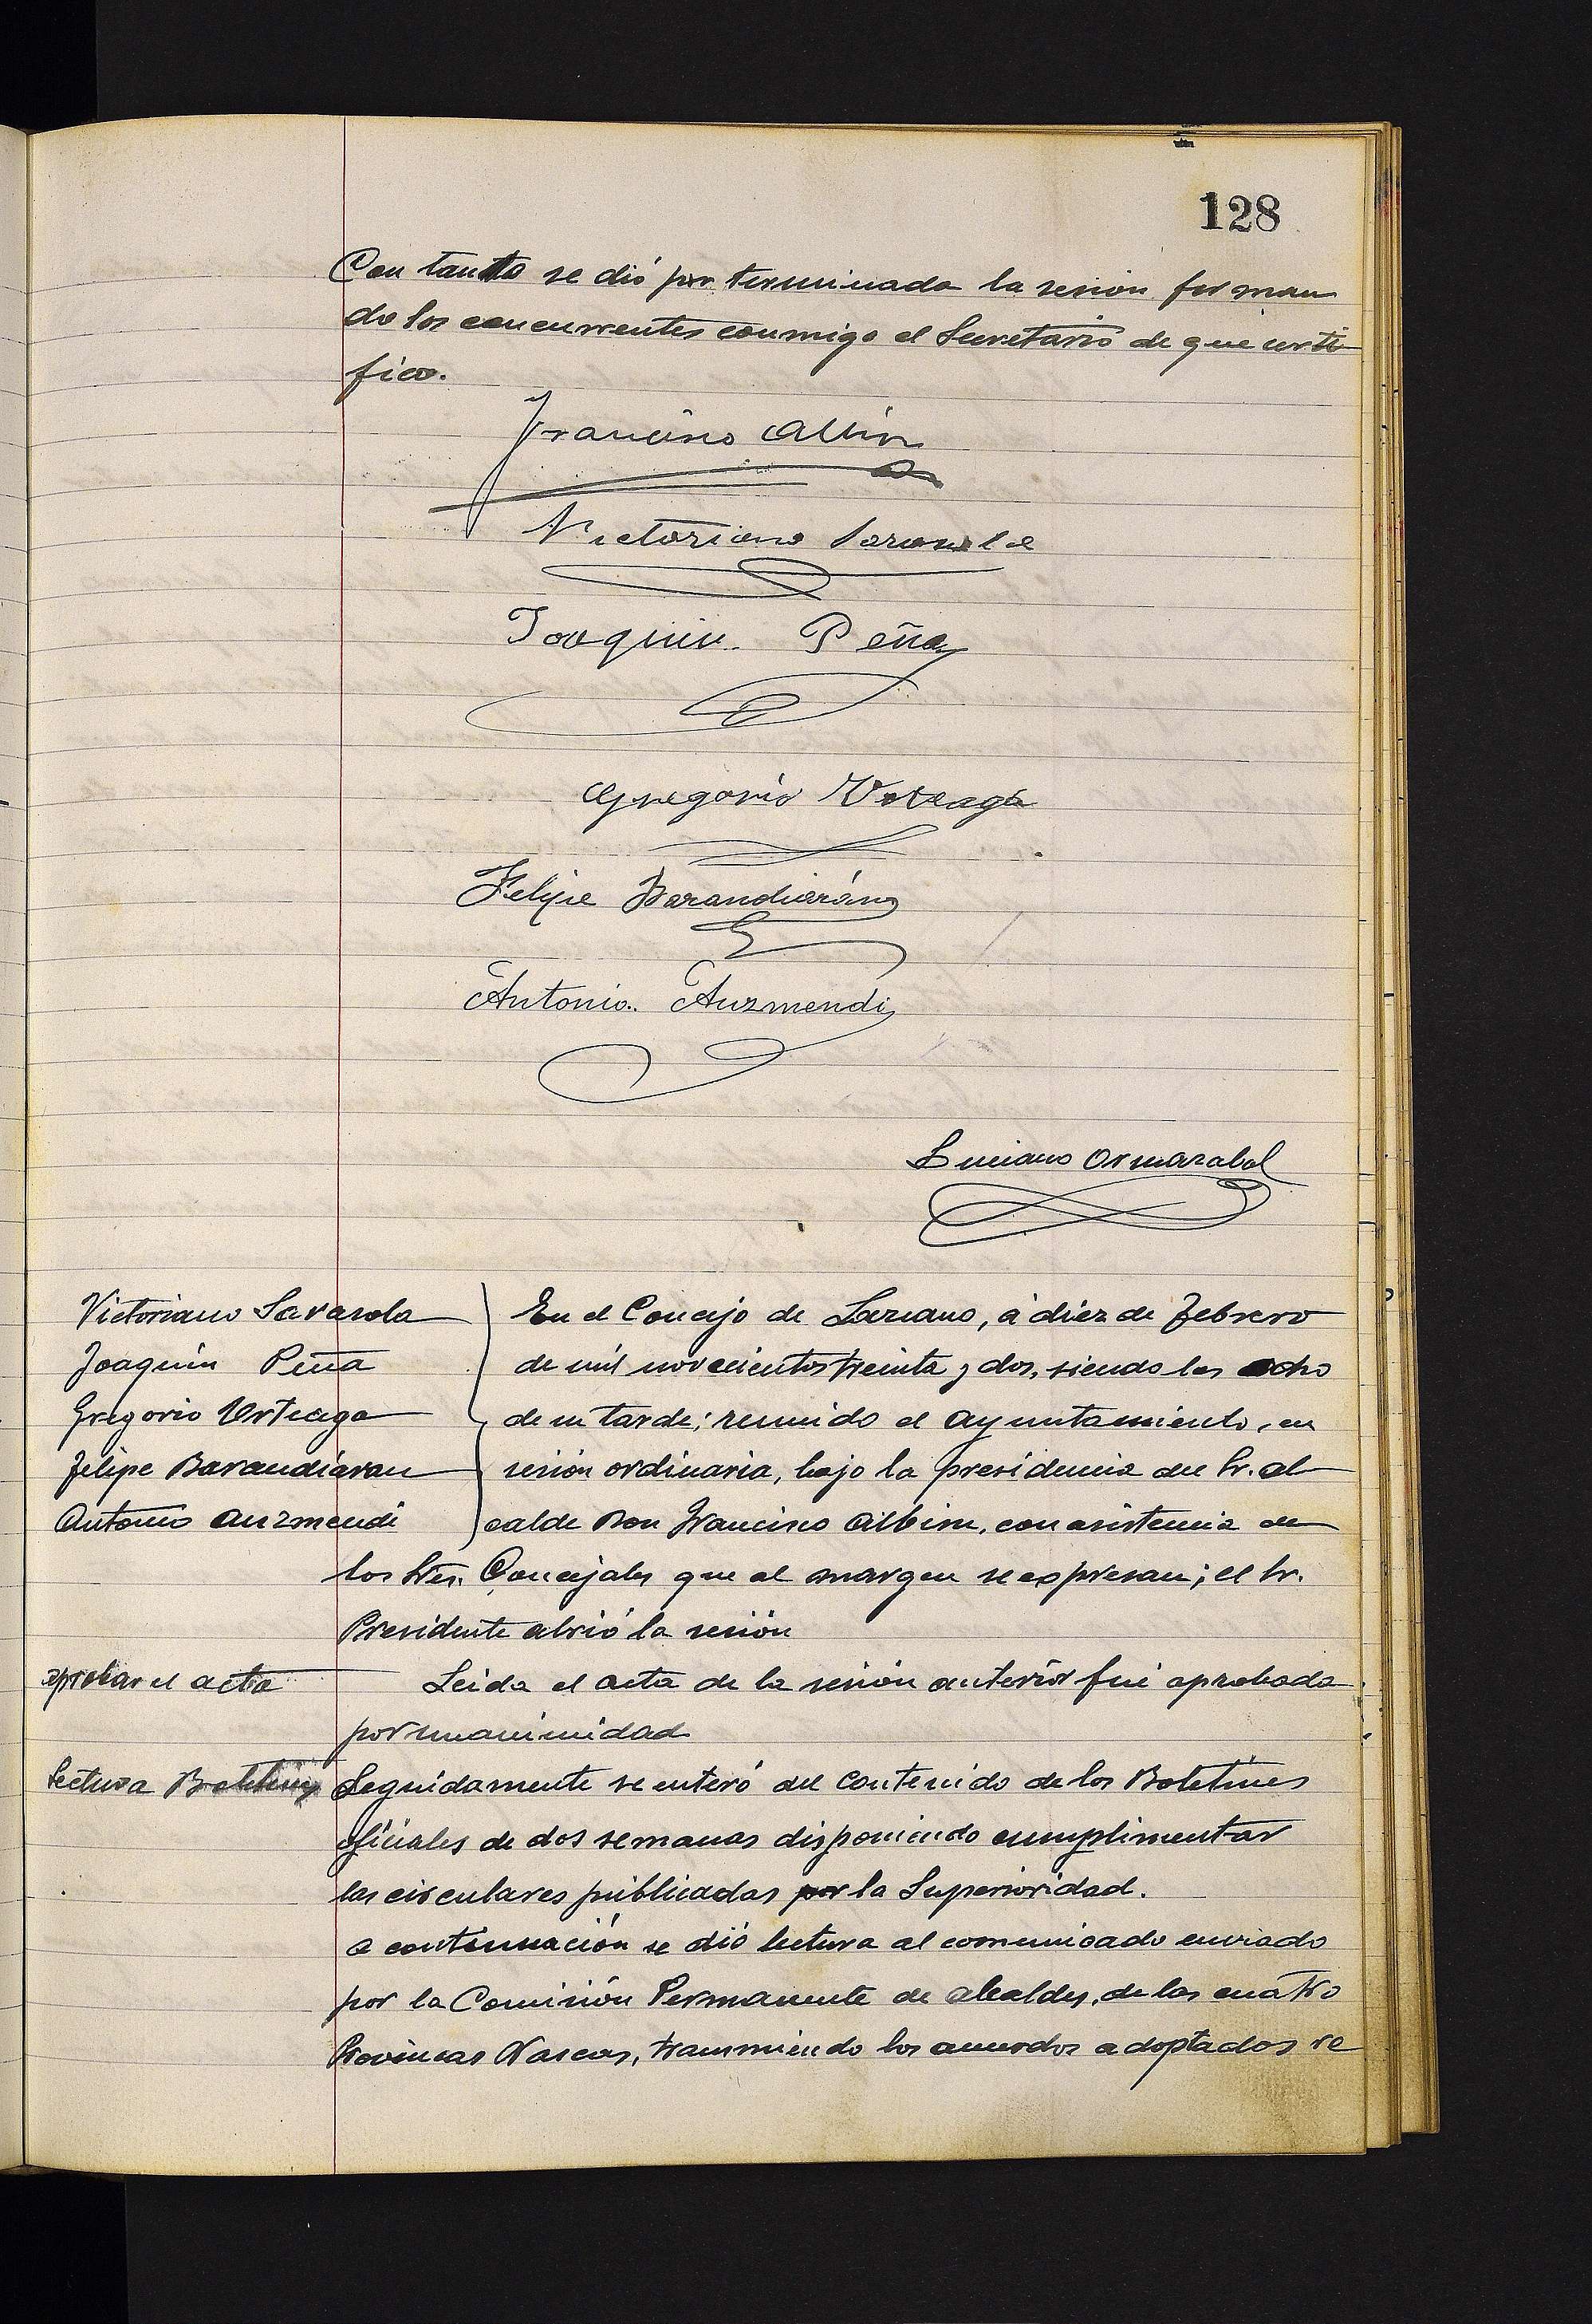 128
Con tanto se dió por terminada la sesión forman
do los concurrentes conmigo el Secretario de que certi
fico.
Francisco Albisu
Victoriano Sarasola
Joaquin Peña
Gregorio Urteaga
Felipe Barandiarán
Antonio Auzmendi
Luciano Ormazabal
Victoriano Sarasola
Joaquin Peña
Gregorio Urteaga
Felipe Barandiaran
Antonio Auzmendi
En el Concejo de Lazcano, á diez de Febrero
de mil novecientos treinta y dos, siendo las ocho
de su tarde; reunido el Ayuntamiento, en
sesión ordinaria, bajo la presidencia del Sr. Al
calde Don Francisco Albisu, con asistencia de
los Sres. Concejales que al margen se expresan; el Sr.
Presidente abrió la sesión
aprobar el acta
Leida el acta de la sesión anterior fué aprobada
por unanimidad
Lectura Boletines
Seguidamente se enteró del contenido de los Boletines
oficiales de dos semanas disponiendo cumplimentar
las circulares publicadas por la Superioridad.
a continuación se dió lectura al comunicado enviado
por la Comisión Permanente de Alcaldes, de las cuatro
Provincas Vascas, transmiendo los acuerdos adoptados re